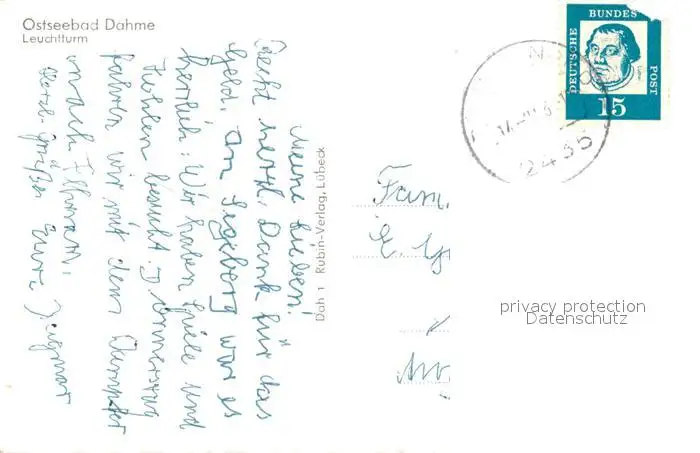 Ostseebad Dahme
Leuchtturm
Meine Lieben!
Recht herzl. Dank für das
Geld. In Segeberg war es
herrlich. Wir haben Spiele und
Höhlen besucht. Donnerstag
fahren wir mit dem Dampfer
nach Fehmarn.
Herzl. Grüße Eure
Dah 1 Rubin-Verlag, Lübeck
Fam.
DEUTSCHE
BUNDES
POST
Luther
15
2435
privacy protection
Datenschutz